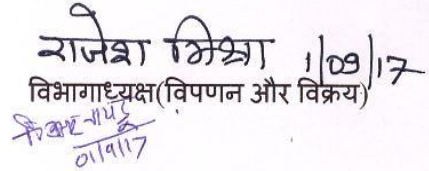 राजेश मिश्रा 1/09/17
विभागाध्यक्ष(विपणन और विक्रय)
01/9/17